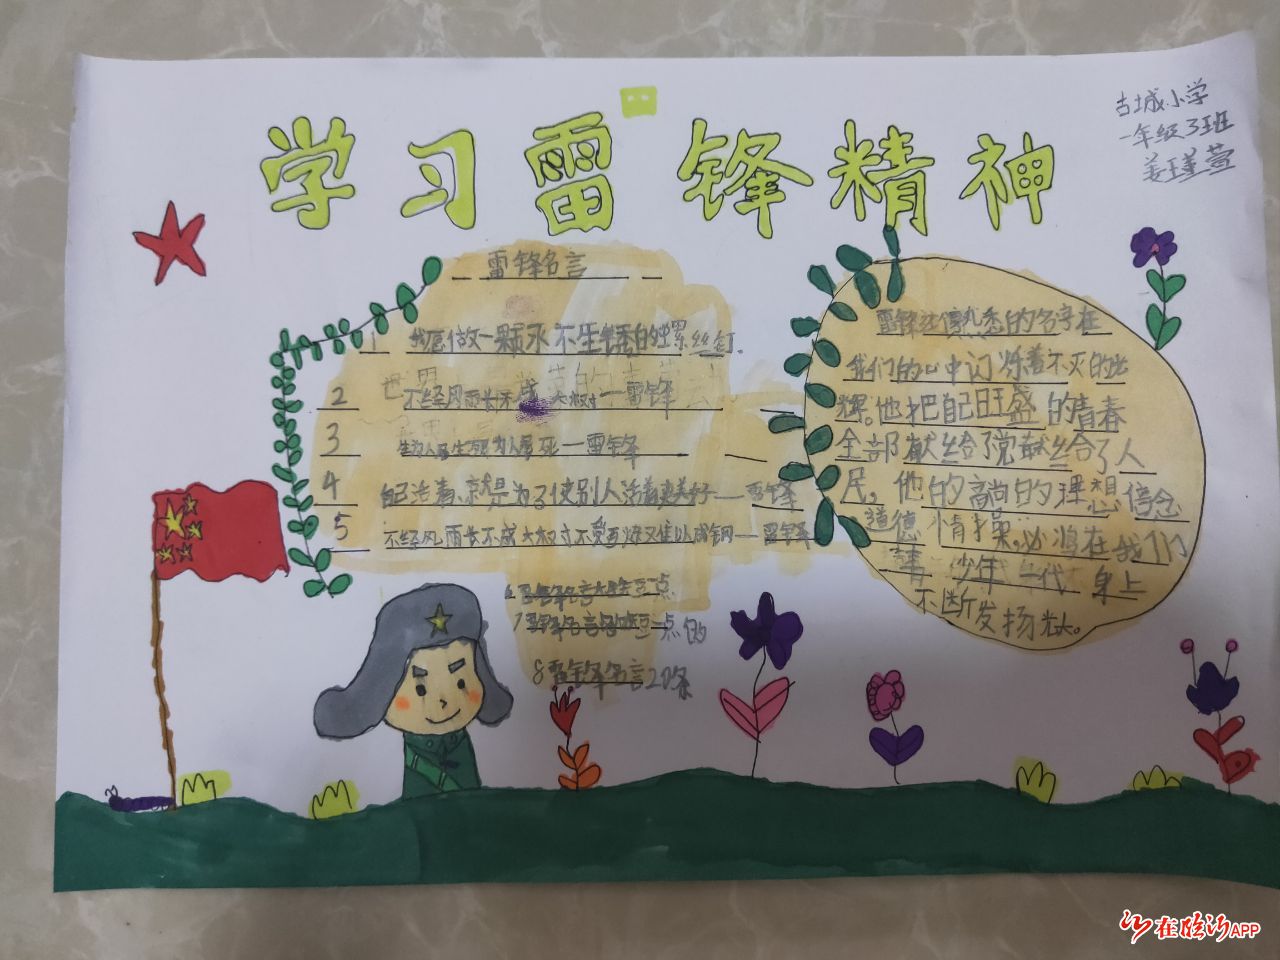 古城小学
一年级3班
姜瑾萱
学习雷锋精神
雷锋名言
1 我愿做一颗永不生锈的螺丝钉.
2 不经风雨长不成大树——雷锋
3 生为人民生死为人民死——雷锋
4 自己活着、就是为了使别人活着更美好——雷锋
5 不经风雨长不成大树才不受百炼难以成钢——雷锋
6 雷锋名言大全短一点
7 雷锋名言名句短一点的
8 雷锋名言20条
雷锋这个熟悉的名字在
我们的心中闪烁着不灭的光
辉。他把自己旺盛的青春
全部献给了党献给了人
民,他的高尚的理想信念
道德情操。必鸿在我们
青少年一代身上
不断发扬光大。
在临沂APP